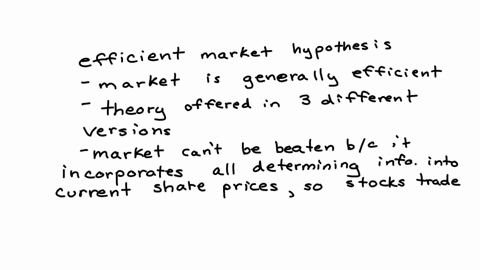 efficient market hypothesis
- market is generally efficient
- theory offered in 3 different
versions
- market can't be beaten b/c it
incorporates all determining info. into
current share prices, so stocks trade